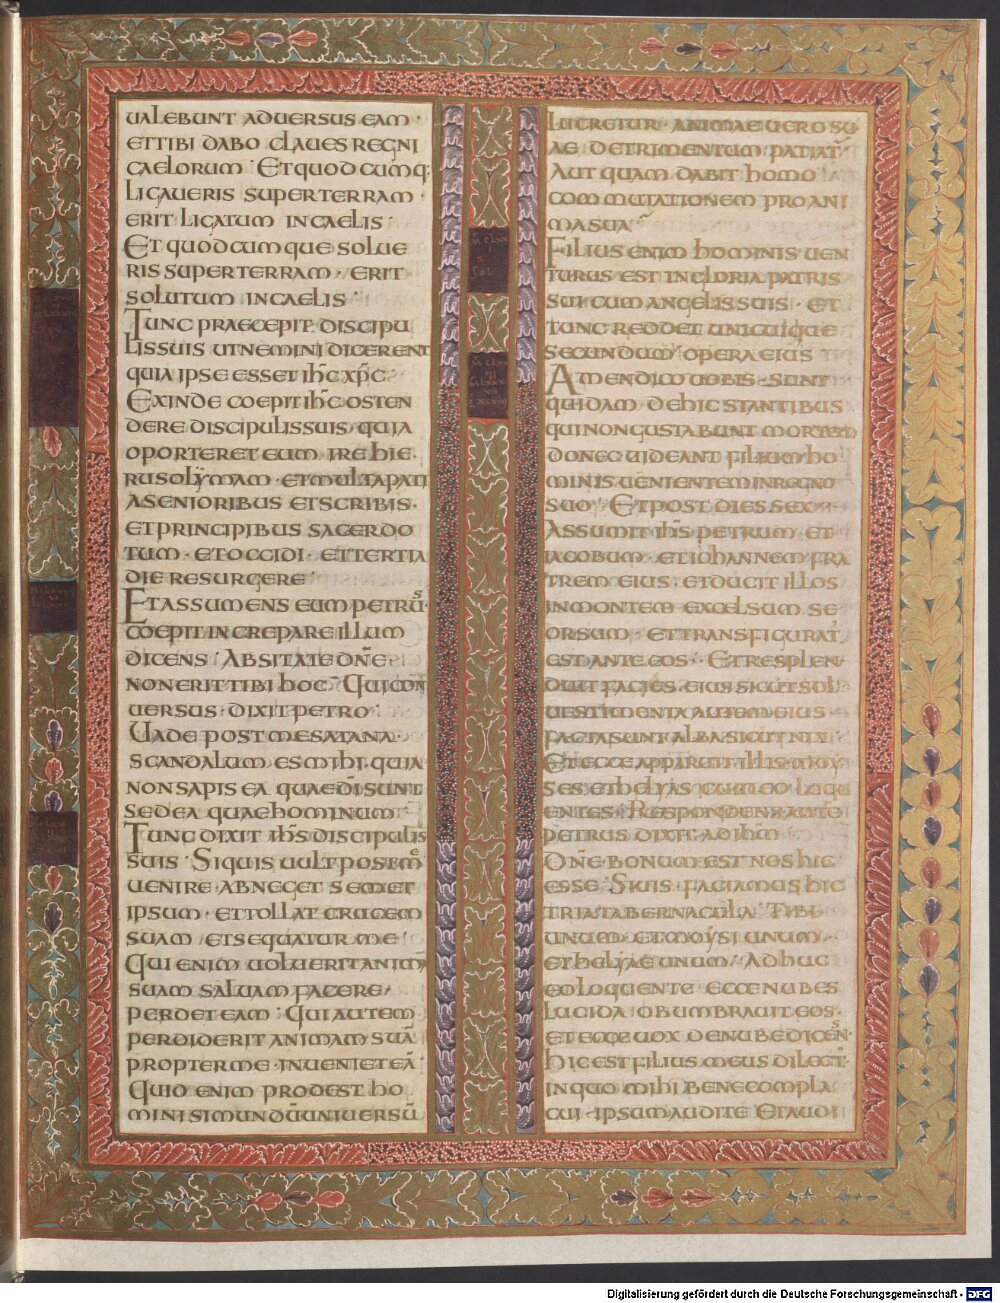 UALEBUNT ADUERSUS EAM·
ET TIBI DABO CLAUES REGNI
CAELORUM· ET QUODCUMQ;
LIGAUERIS SUPER TERRAM·
ERIT LIGATUM IN CAELIS·
ET QUODCUMQUE SOLUE
RIS SUPER TERRAM· ERIT
SOLUTUM IN CAELIS·
TUNC PRAECEPIT DISCIPU
LIS SUIS UT NEMINI DICERENT
QUIA IPSE ESSET IH̅C XP̅C·
EXINDE COEPIT IH̅C OSTEN
DERE DISCIPULIS SUIS· QUIA
OPORTERET EUM IRE HIE
RUSOLYMAM· ET MULTA PATI
A SENIORIBUS ET SCRIBIS·
ET PRINCIPIBUS SACERDO
TUM· ET OCCIDI· ET TERTIA
DIE RESURGERE·
ET ASSUMENS EUM PETRUS·
COEPIT INCREPARE ILLUM
DICENS· ABSIT A TE DN̅E·
NON ERIT TIBI HOC· QUI CON
UERSUS· DIXIT PETRO·
UADE POST ME SATANA·
SCANDALUM ES MIHI· QUIA
NON SAPIS EA QUAE DI̅ SUNT
SED EA QUAE HOMINUM·
TUNC DIXIT IH̅S DISCIPULIS
SUIS· SI QUIS UULT POST ME
UENIRE· ABNEGET SEMET
IPSUM· ET TOLLAT CRUCEM
SUAM ET SEQUATUR ME·
QUI ENIM UOLUERIT ANIMA̅
SUAM SALUAM FACERE·
PERDET EAM· QUI AUTEM
PERDIDERIT ANIMAM SUA̅
PROPTER ME· INUENIET EA̅·
QUID ENIM PRODEST HO
MINI SI MUNDU̅ UNIUERSU̅
LUCRETUR· ANIMAE UERO SU
AE DETRIMENTUM PATIAT̅
AUT QUAM DABIT HOMO
COMMUTATIONEM PRO ANI
MA SUA·
FILIUS ENIM HOMINIS UEN
TURUS EST IN GLORIA PATRIS
SUI CUM ANGELIS SUIS· ET
TUNC REDDET UNICUIQUE
SECUNDUM OPERA EIUS
AMEN DICO UOBIS· SUNT
QUIDAM DE HIC STANTIBUS
QUI NON GUSTABUNT MORTEM
DONEC UIDEANT FILIUM HO
MINIS UENIENTEM IN REGNO
SUO· ET POST DIES SEX·
ASSUMIT IH̅S PETRUM· ET
IACOBUM· ET IOHANNEM FRA
TREM EIUS· ET DUCIT ILLOS
IN MONTEM EXCELSUM SE
ORSUM· ET TRANSFIGURAT̅
EST ANTE EOS· ET RESPLEN
DUIT FACIES EIUS SICUT SOL
UESTIMENTA AUTEM EIUS
FACTA SUNT ALBA SICUT NIX·
ET ECCE APPARUIT ILLIS MOY
SES ET HELYAS CUM EO LOQU
ENTES· RESPONDENS AUTE̅
PETRUS DIXIT AD IHM̅
DN̅E BONUM EST NOS HIC
ESSE· SI UIS FACIAMUS HIC
TRIA TABERNACULA· TIBI
UNUM· ET MOYSI UNUM·
ET HELYAE UNUM· ADHUC
EO LOQUENTE ECCE NUBES
LUCIDA OBUMBRAUIT EOS·
ET ECCE UOX DE NUBE DICENS·
HIC EST FILIUS MEUS DILECT·
IN QUO MIHI BENE COMPLA
CUI· IPSUM AUDITE ET AUDI
Digitalisierung gefördert durch die Deutsche Forschungsgemeinschaft - DFG